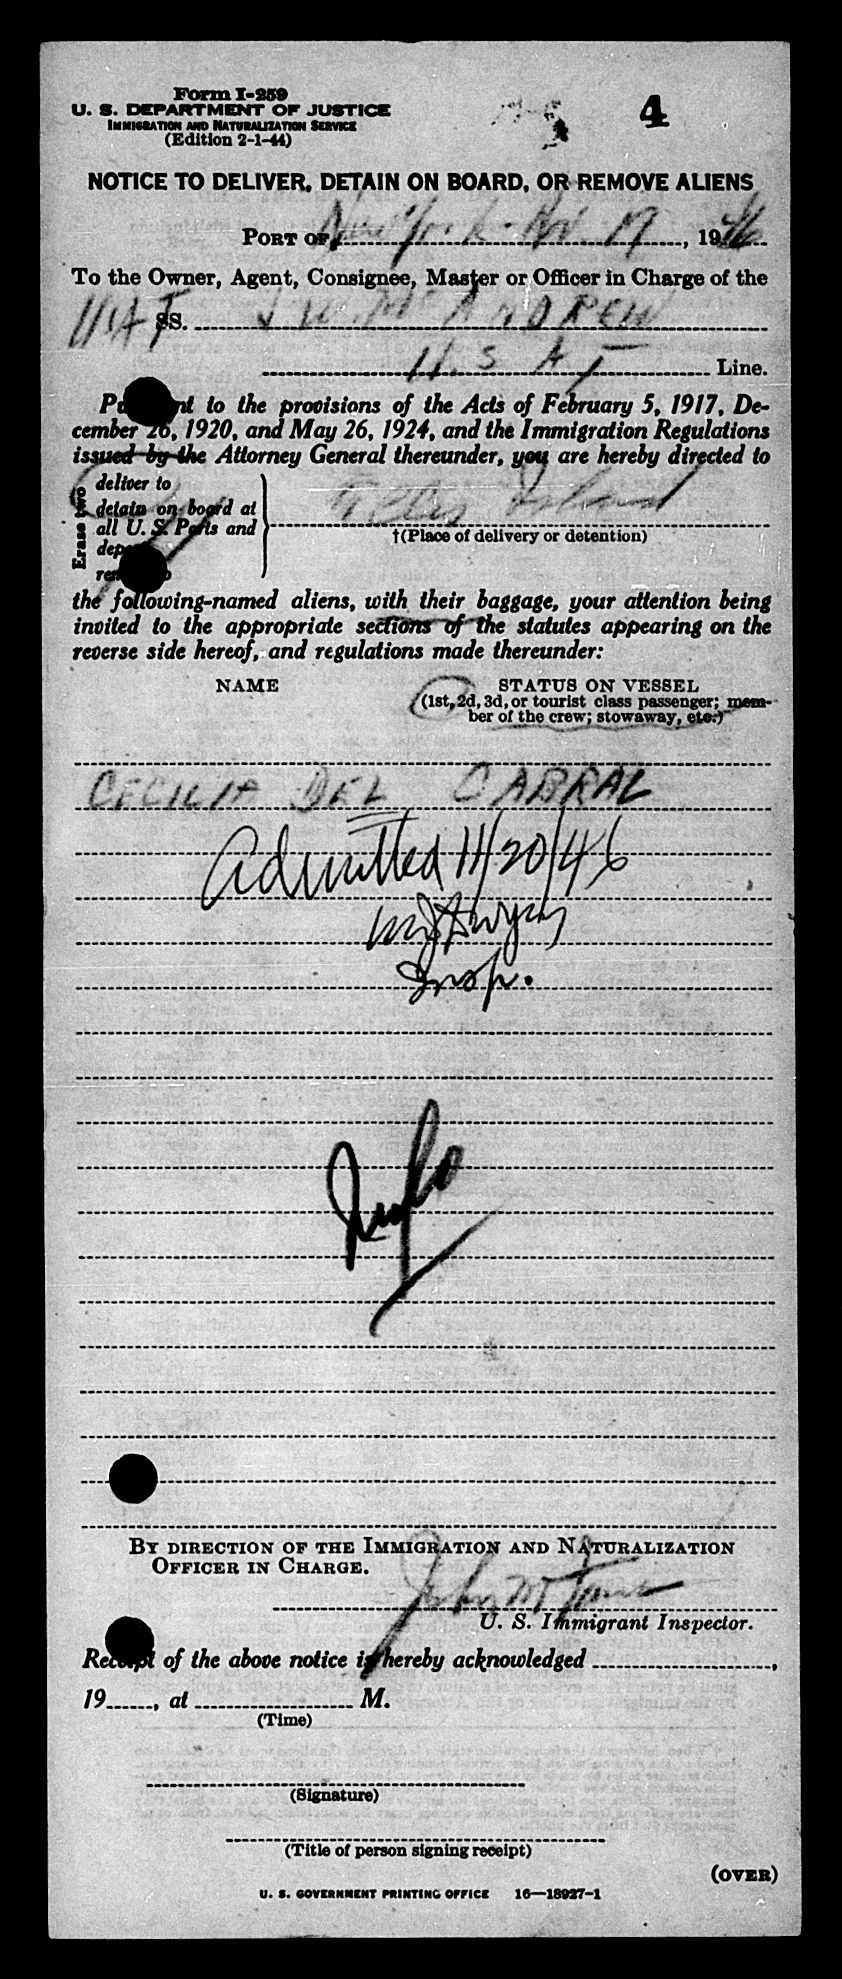 Form I-259
4
U. S. DEPARTMENT OF JUSTICE
IMMIGRATION AND NATURALIZATION SERVICE
(Edition 2-1-44)
NOTICE TO DELIVER, DETAIN ON BOARD, OR REMOVE ALIENS
PORT OF New York Nov 19, 1946
To the Owner, Agent, Consignee, Master or Officer in Charge of the
USAT SS. J W McANDREW
U.S.A T Line.
to the provisions of the Acts of February 5, 1917, De-
cember 26, 1920, and May 26, 1924, and the Immigration Regulations
issued by the Attorney General thereunder, you are hereby directed to
Erase two
deliver to
detain on board at
all U. S. Ports and
Ellis Island
†(Place of delivery or detention)
the following-named aliens, with their baggage, your attention being
invited to the appropriate sections of the statutes appearing on the
reverse side hereof, and regulations made thereunder:
NAME
STATUS ON VESSEL
(1st, 2d, 3d, or tourist class passenger; mem-
ber of the crew; stowaway, etc.)
CECILIA DEL CABRAL
Admitted 11/20/46
Insp.
BY DIRECTION OF THE IMMIGRATION AND NATURALIZATION
OFFICER IN CHARGE.
John M
U. S. Immigrant Inspector.
Receipt of the above notice is hereby acknowledged ,
19 , at M.
(Time)
(Signature)
(Title of person signing receipt)
(OVER)
U. S. GOVERNMENT PRINTING OFFICE 16—18927-1